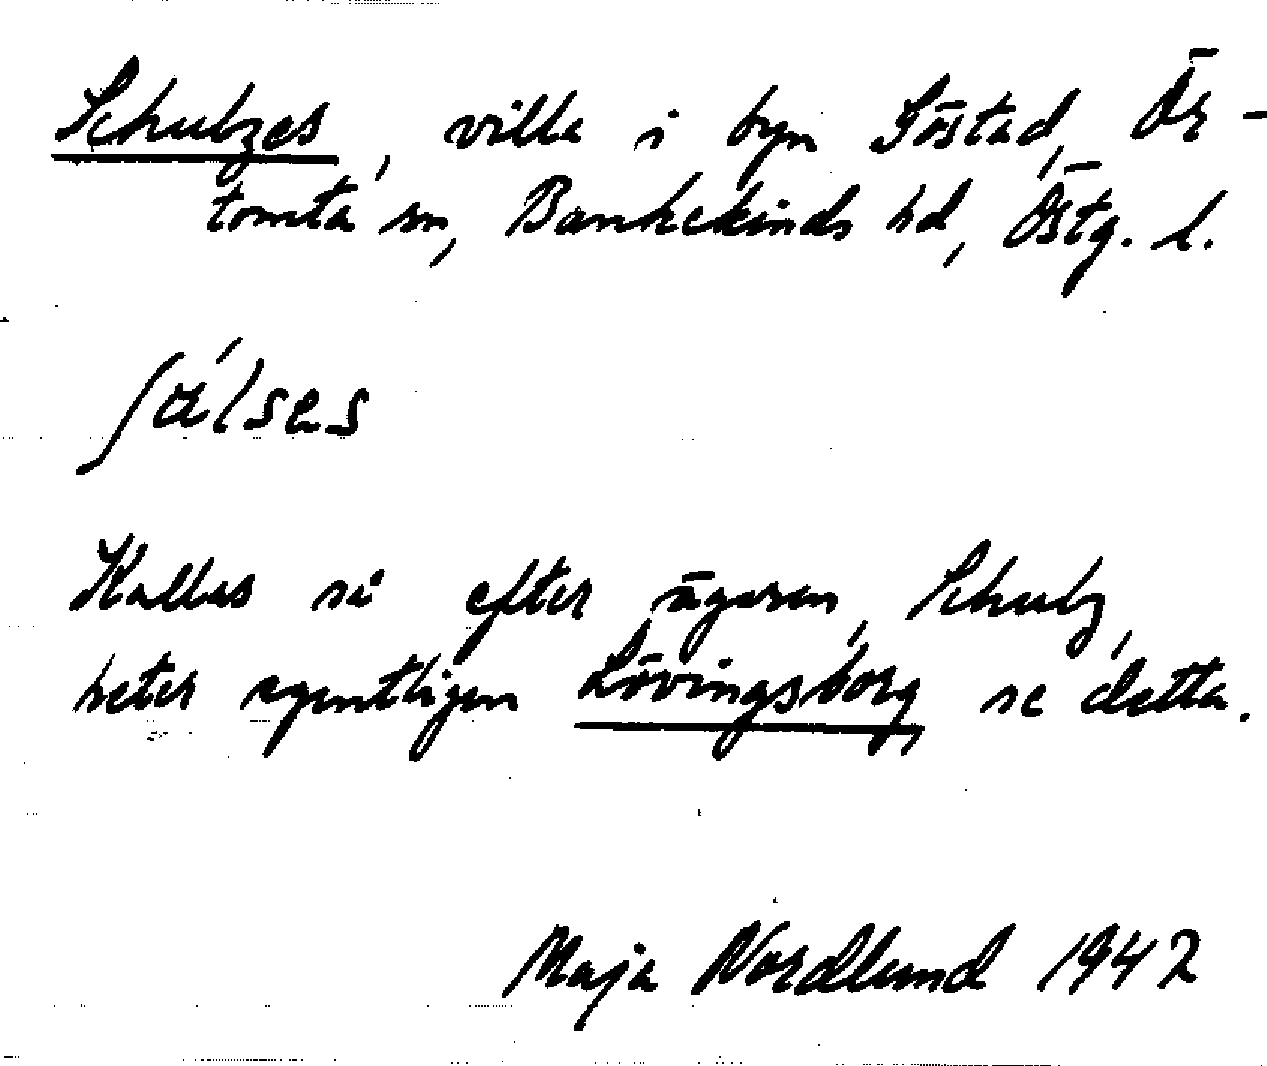 Schulzes, villa i byn Töstad, Ör-
tomta sn, Bankekinds hd, Östg. l.
ʃál̀ses
Kallas så efter ägaren, Schulz,
heter egentligen Lövingsborg, se detta.
Maja Nordlund 1942